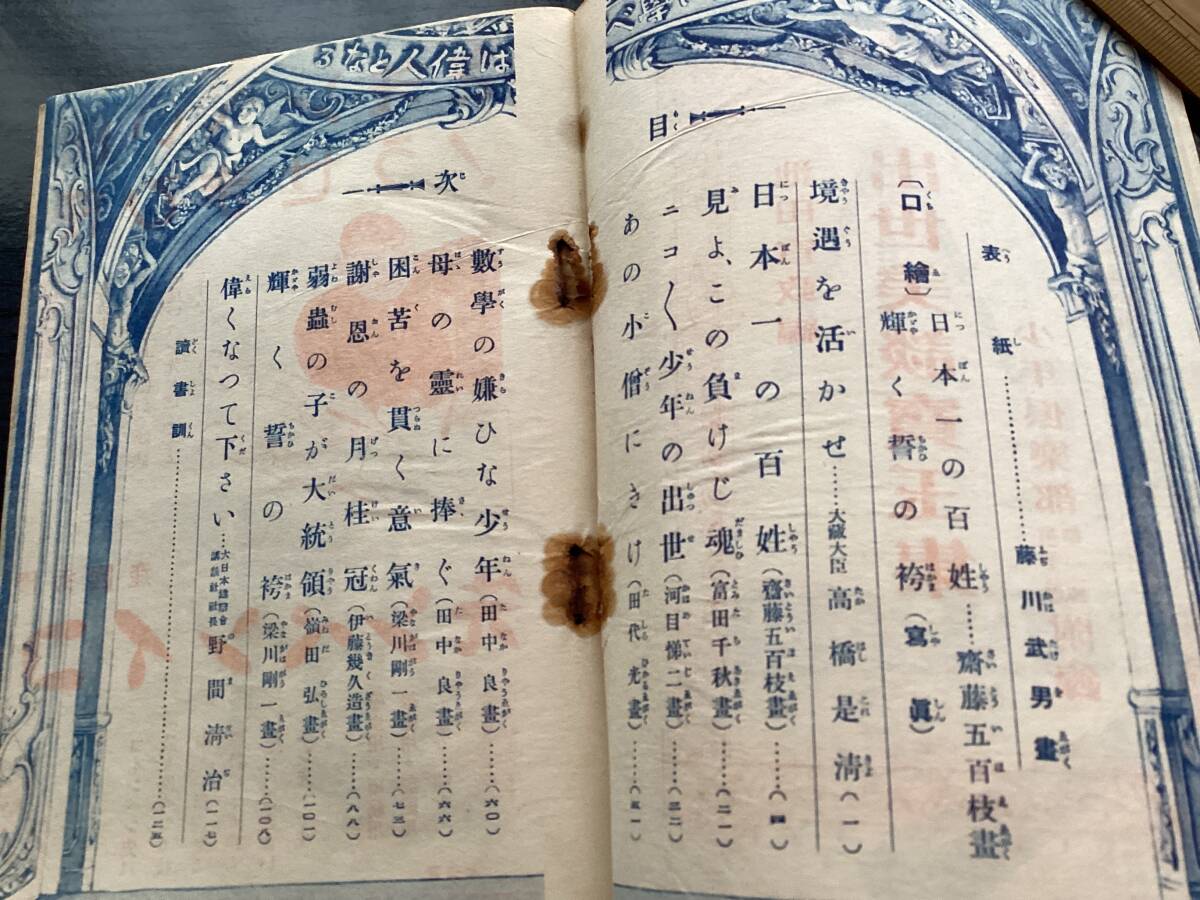 目
表紙……………………藤川武男畫
〔口繪〕日本一の百姓……齋藤五百枝畫
輝く誓の袴(寫眞)
境遇を活かせ……大藏大臣 高橋是清(一)
日本一の百姓(齋藤五百枝畫)……(四)
見よ、この負けじ魂(富田千秋畫)……(二一)
ニコ〱少年の出世(河目悌二畫)……(三二)
あの小僧にきけ(田代光畫)……(五一)
は偉人となる
次
數學の嫌ひな少年(田中良畫)……(六〇)
母の靈に捧ぐ(田中良畫)……(六六)
困苦を貫く意氣(梁川剛一畫)……(七三)
謝恩の月桂冠(伊藤幾久造畫)……(八八)
弱蟲の子が大統領(嶺田弘畫)……(一〇一)
輝く誓の袴(梁川剛一畫)……(一〇六)
偉くなつて下さい…大日本雄辯會講談社社長 野間淸治(一一七)
讀書訓……………………(一二五)